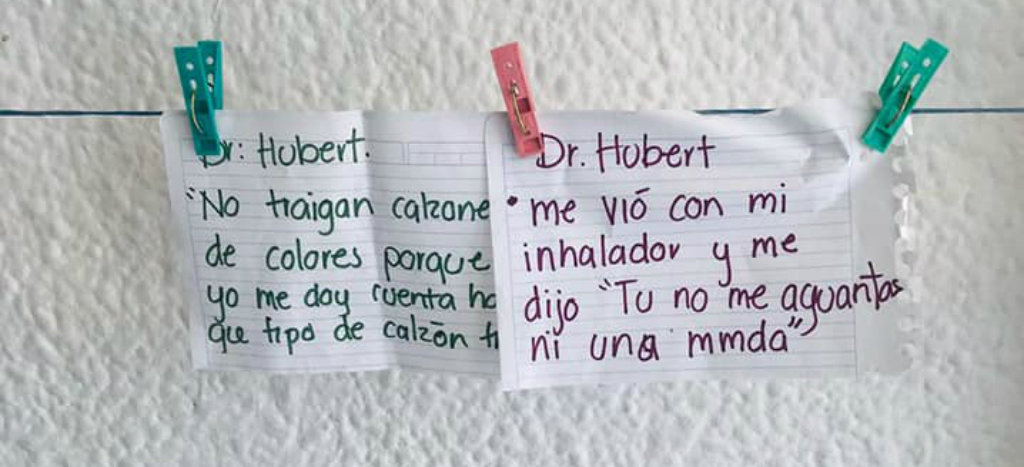 Dr: Hubert.
"No traigan calzone
de colores porque
yo me doy cuenta ha
que tipo de calzón tr
Dr. Hubert
• me vió con mi
inhalador y me
dijo "Tu no me aguantas
ni una mmda"